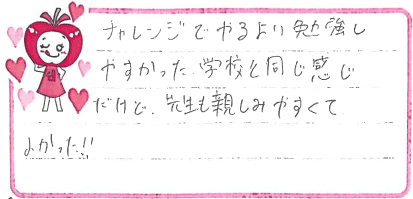 チャレンジでやるより勉強し
やすかった。学校と同じ感じ
だけど、先生も親しみやすくて
よかった!!